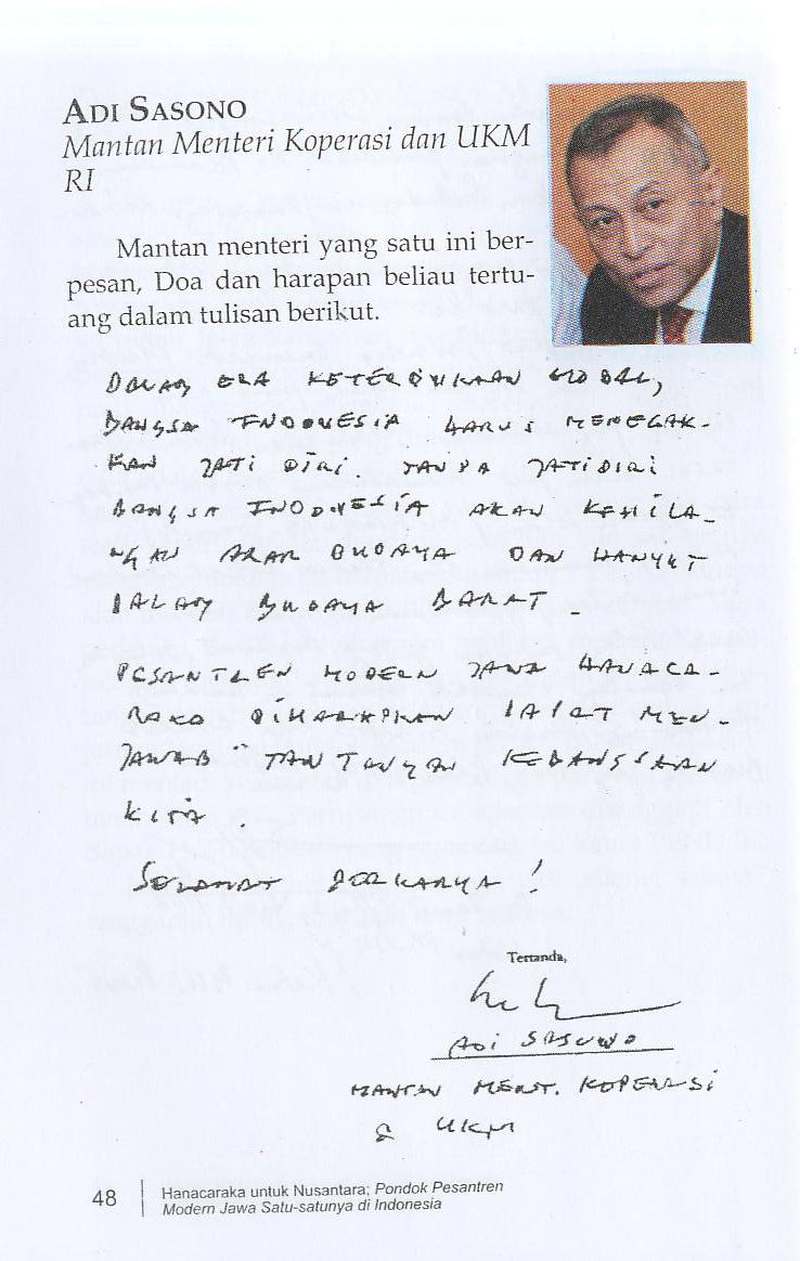 ADI SASONO
Mantan Menteri Koperasi dan UKM
RI
Mantan menteri yang satu ini ber-
pesan, Doa dan harapan beliau tertu-
ang dalam tulisan berikut.
DALAM ERA KETERBUKAAN GLOBAL,
BANGSA INDONESIA HARUS MENEGAK-
KAN JATI DIRI. TANPA JATIDIRI
BANGSA INDONESIA AKAN KEHILA-
NGAN AKAR BUDAYA DAN HANYUT
DALAM BUDAYA BARAT.
PESANTREN MODERN JAWA HANACA-
RAKA DIHARAPKAN DAPAT MEN-
JAWAB TANTANGAN KEBANGSAAN
KITA.
SELAMAT BERKARYA!
Tertanda,
ADI SASONO
MANTAN MENT. KOPERASI
& UKM
48
Hanacaraka untuk Nusantara; Pondok Pesantren
Modern Jawa Satu-satunya di Indonesia